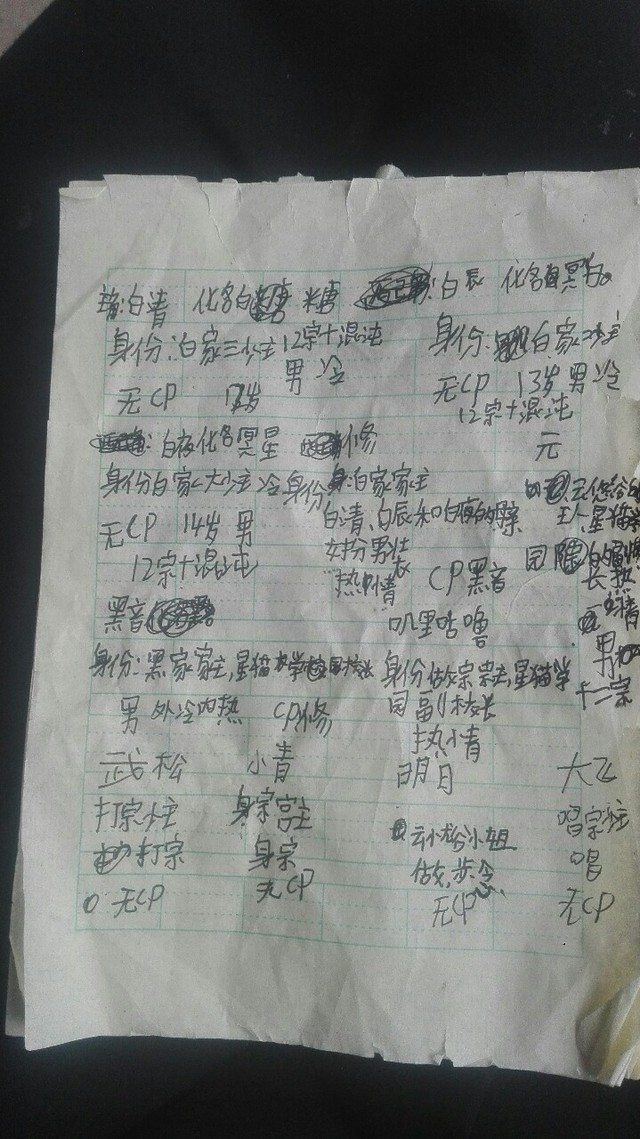 白清 化名白糖 糖 白辰 化名冥白
身份:白家三少主 12宗十混沌 身份:白家二少主
男冷
无CP 12岁 无CP 13岁男冷
12宗十混沌
白夜化名冥星 修 元
身份白家大少主 冷 身份:白家家主
白清、白辰和白夜的母亲
无CP 14岁 男 女扮男装
12宗十混沌 热情 CP黑音
黑音 叽里咕噜
身份:黑家家主,星猫学园校长 身份做宗宗主,星猫学
男外冷内热 CP修 园副校长
热情
武松 小青 明月 大飞
打宗宗主 身宗宫主 唱宗宗主
打宗 身宗 小姐 唱
做,念
无CP 无CP 无CP 无CP
男
十二宗